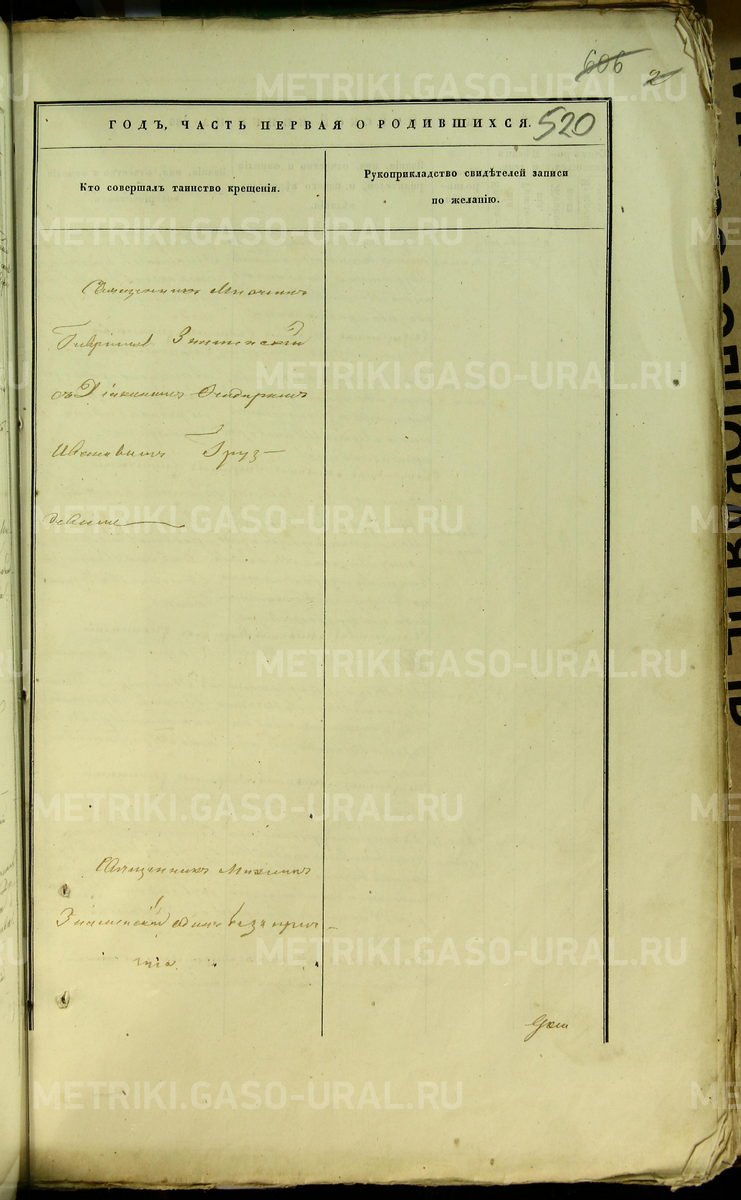 606
2
ГОДЪ, ЧАСТЬ ПЕРВАЯ О РОДИВШИХСЯ. 520
Кто совершалъ таинство крещенія.
Рукоприкладство свидѣтелей записи
по желанію.
Священникъ
Гавріиловъ Знаменскій
съ Діакономъ
Ивановымъ Груз-
девымъ
Священникъ Михаилъ
Знаменскій одинъ безъ прич-
та.
METRIKI.GASO-URAL.RU